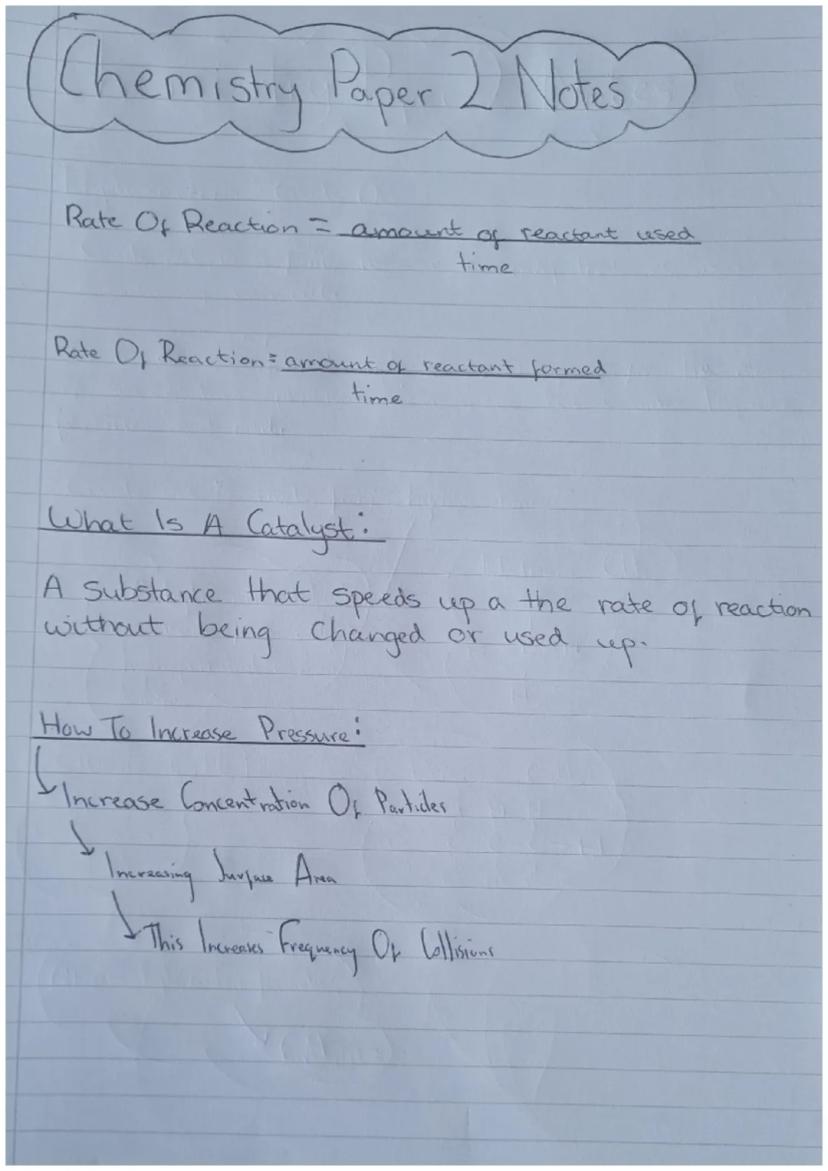 Chemistry Paper 2 Notes
Rate Of Reaction = amount of reactant used
time
Rate Of Reaction = amount of reactant formed
time
What Is A Catalyst:
A substance that speeds up a the rate of reaction
without being changed or used up.
How To Increase Pressure:
Increase Concentration Of Particles
Increasing Surface Area
This Increases Frequency Of Collisions